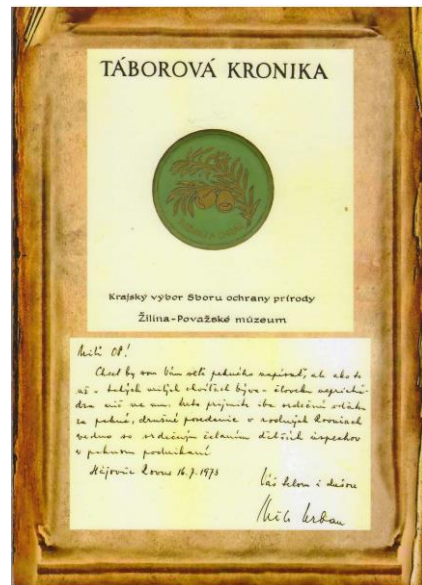 TÁBOROVÁ KRONIKA
Krajský výbor Sboru ochrany prírody
Žilina-Považské múzeum
Milí OP!
Chcel by som Vám veľa pekného napísať, ale ako to
už v takých milých chvíľach býva - človeku neprichá-
dza nič na um. Preto prijmite iba srdečnú vďaku
za pekné, družné posedenie v rodných Rovniach
vedno so srdečným želaním ďalších úspechov
v peknom podnikaní
Hájovňa Rovne 16.7.1973
Váš telom i dušou
Urban